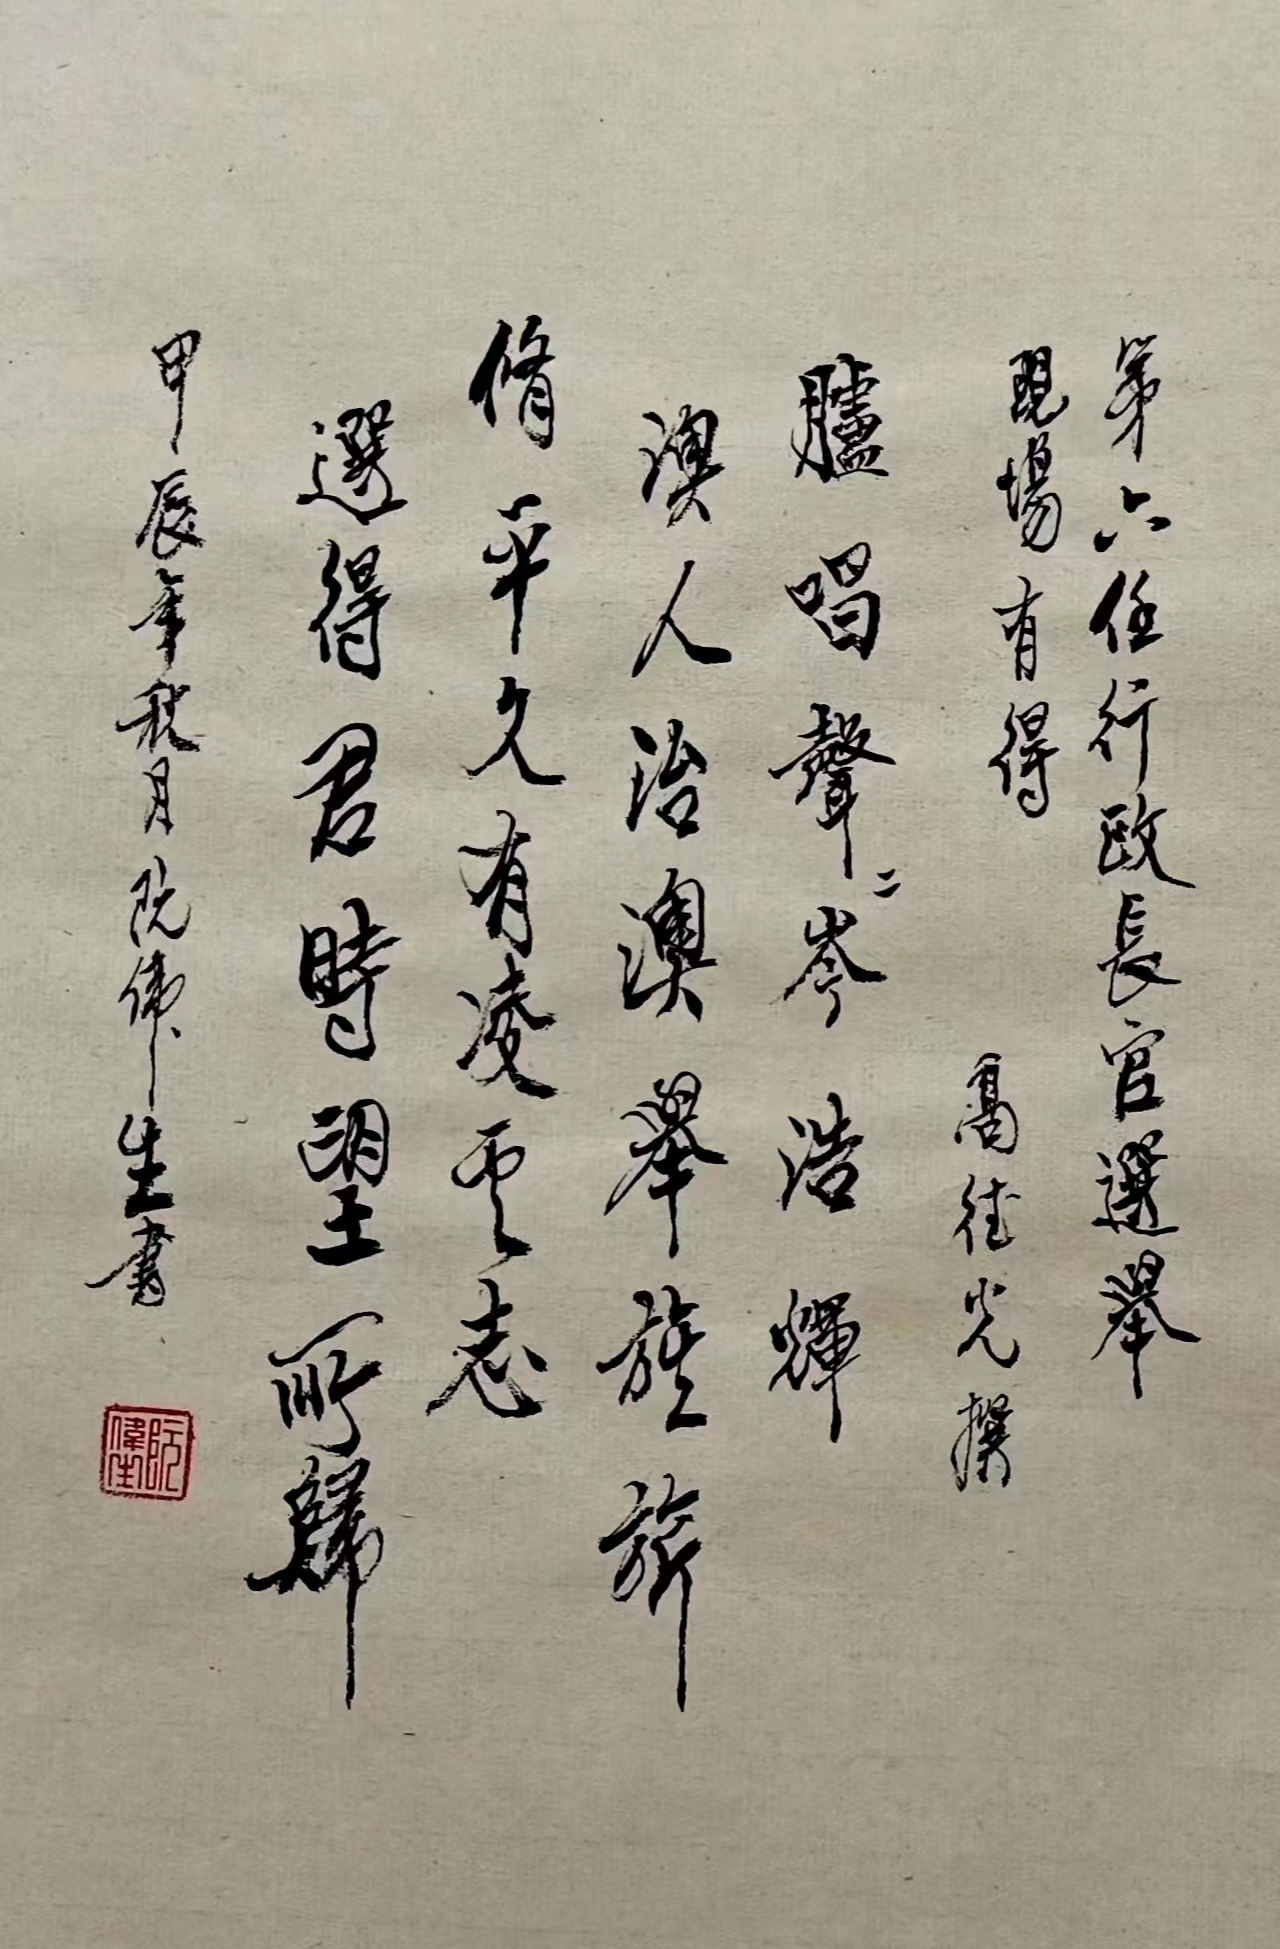 第六任行政長官選舉
現場有得
高佳光撰
臚唱聲〻岑浩輝
澳人治澳舉旌旂
脩平久有凌雲志
選得君時望所歸
甲辰年秋月阮偉生書
阮偉生